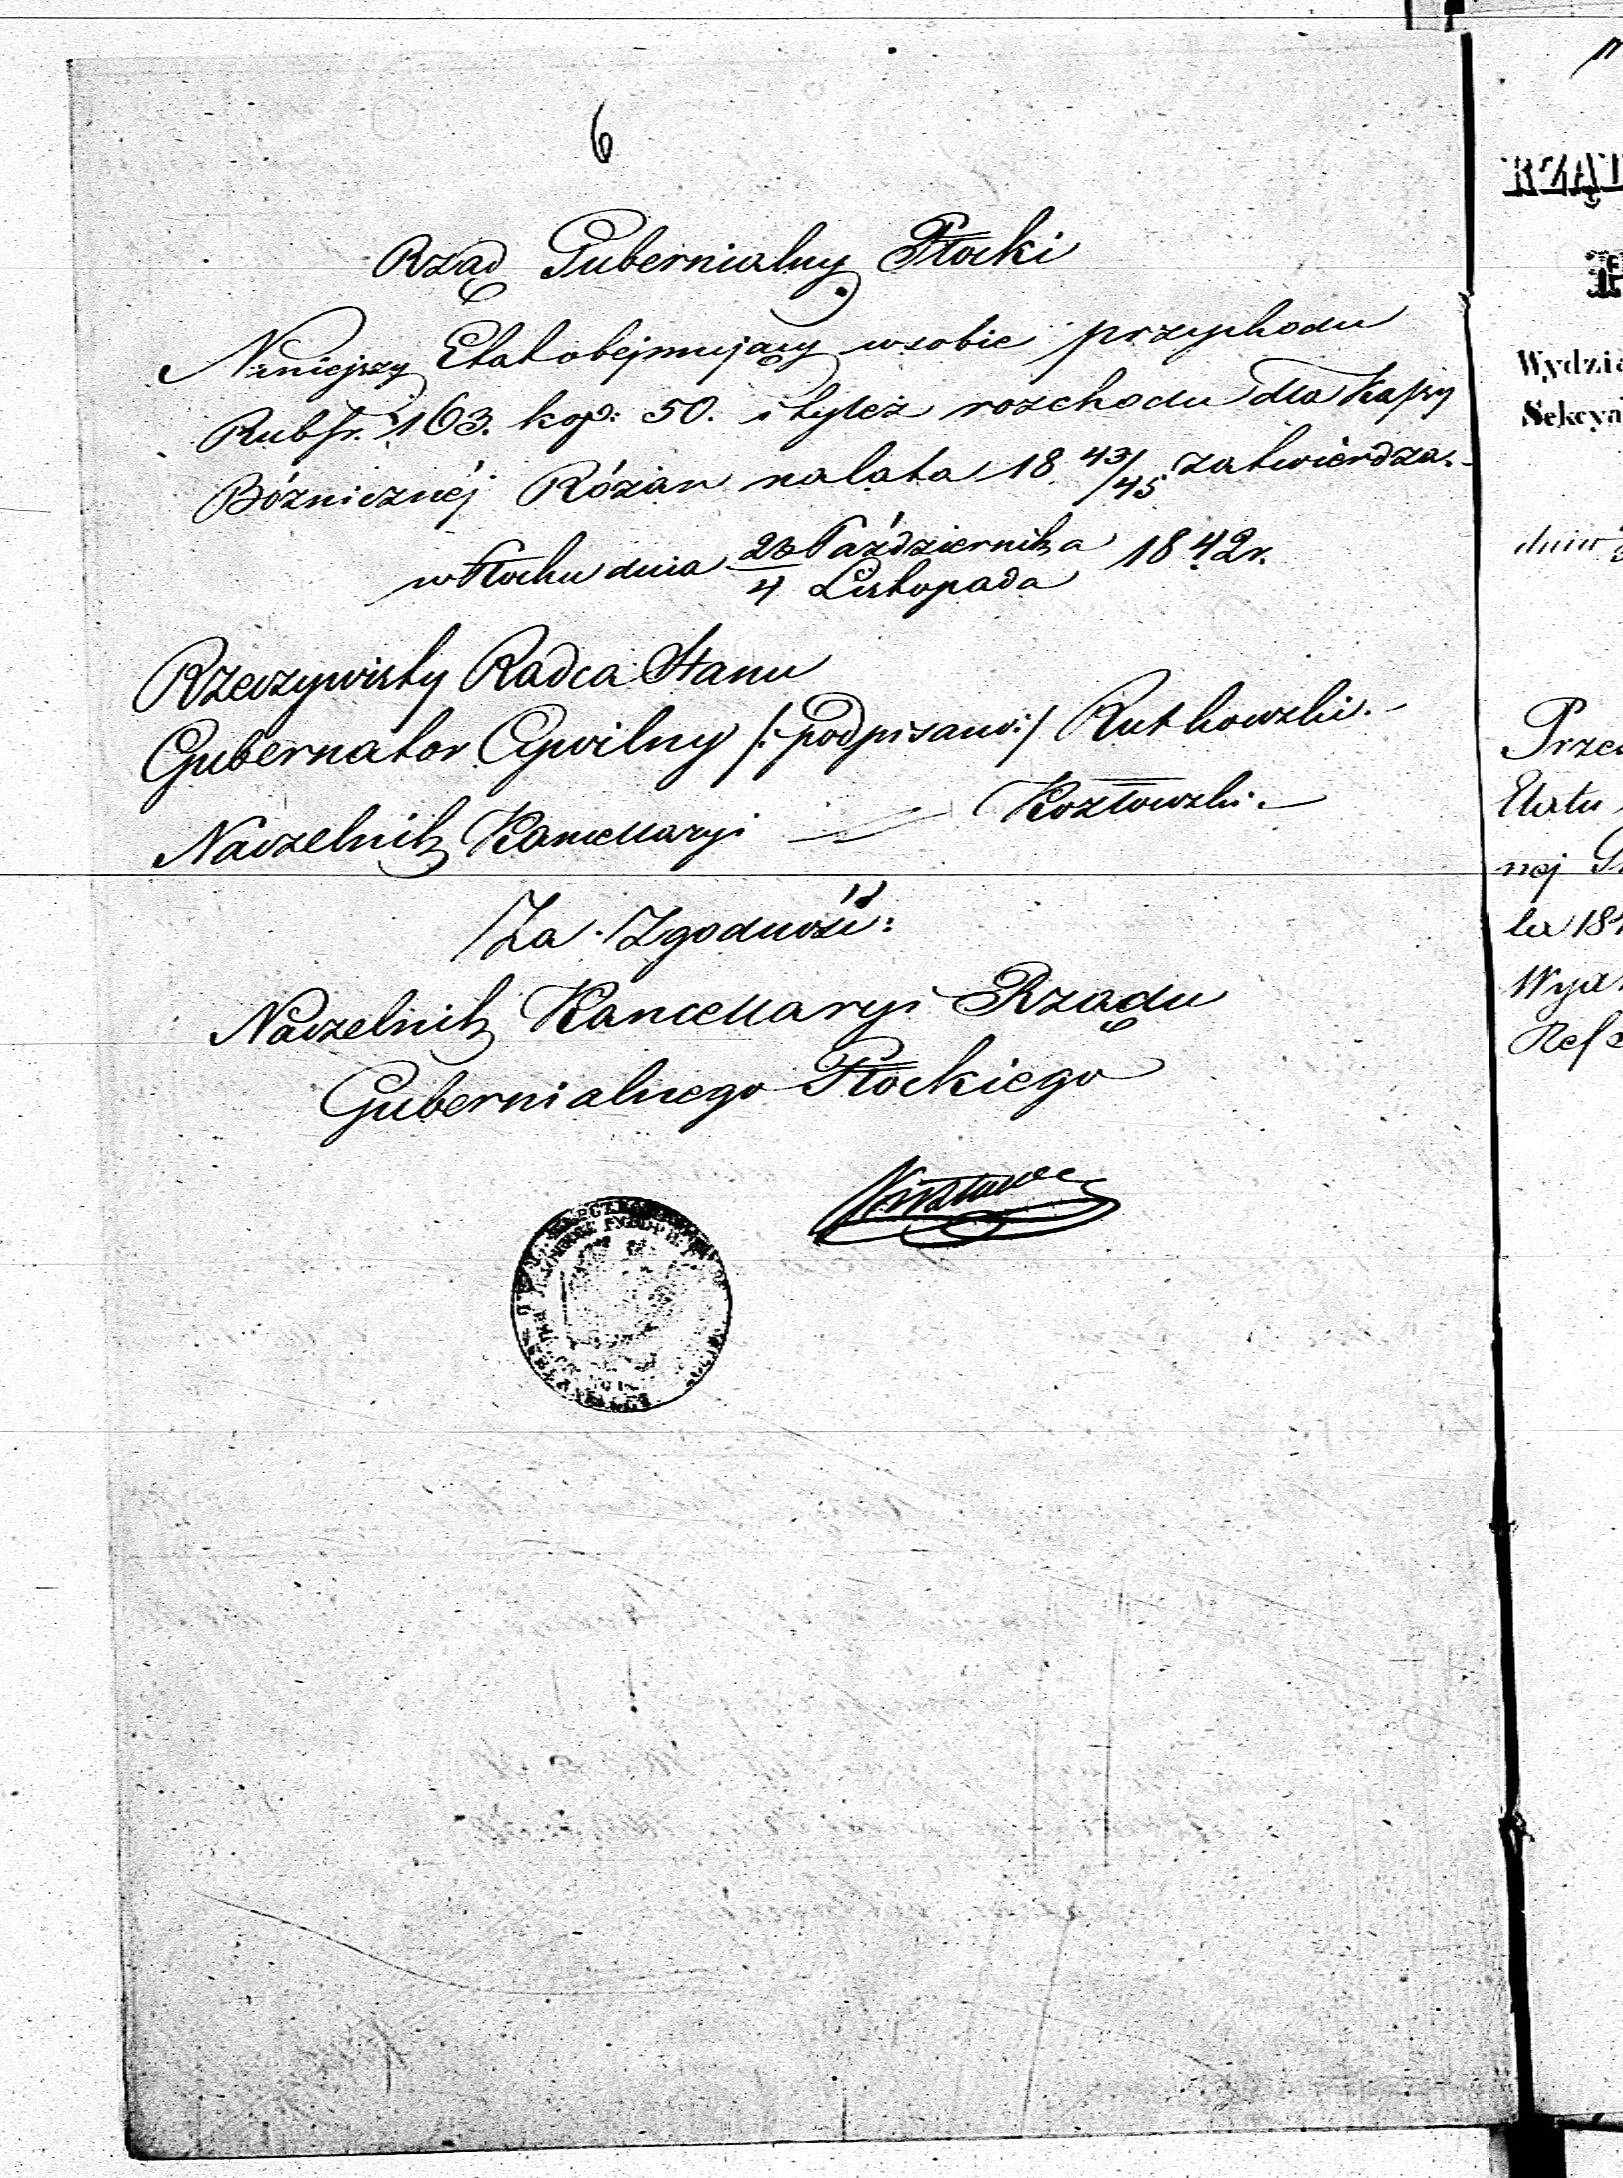 6
Rząd Gubernialny Płocki
Niniejszy Etat obejmujący w sobie przychodu
Rubsr. 163. kop: 50. i tyleż rozchodu dla Kassy
Bóżnicznéj Różan na lata 18 43/45 zatwierdza.-
w Płocku dnia Października 1842 r.
4 Listopada
Rzeczywisty Radca Stanu
Gubernator Cywilny /:podpisano:/ Rutkowski.-
Naczelnik Kancellaryi — Kozłowski.-
Za Zgodność:
Naczelnik Kancellaryi Rządu
Gubernialnego Płockiego
RZĄD
Wydzia
Sekcya
dnia
Przed
Etatu
nej
la 18